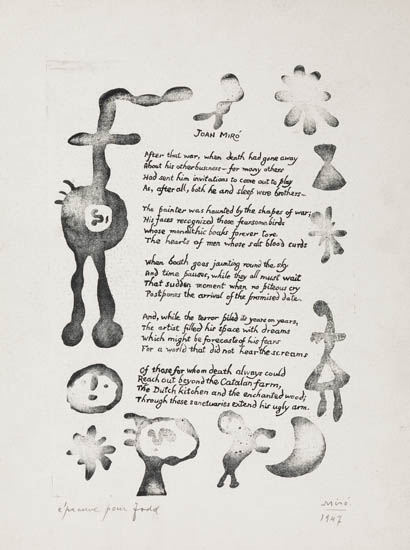 JOAN MIRÓ
After that war, when death had gone away
About his other business – for many others
Had sent him invitations to come out to play
As, after all, both he and sleep were brothers –
The painter was haunted by the shapes of war;
His faces recognized those fearsome birds
Whose monolithic beaks forever tore
The hearts of men whose salt blood curds
When death goes jaunting round the sky
And time pauses, while they all must wait
That sudden moment when no piteous cry
Postpones the arrival of the promised date.
And, while the terror filled its years on years,
The artist filled his space with dreams
Which might be forecasts of his fears
For a world that did not hear the screams
Of those for whom death always could
Reach out beyond the Catalan farm,
The Dutch kitchen and the enchanted wood;
Through these sanctuaries extend his ugly arm.
épreuve pour Todd
Miró.
1947